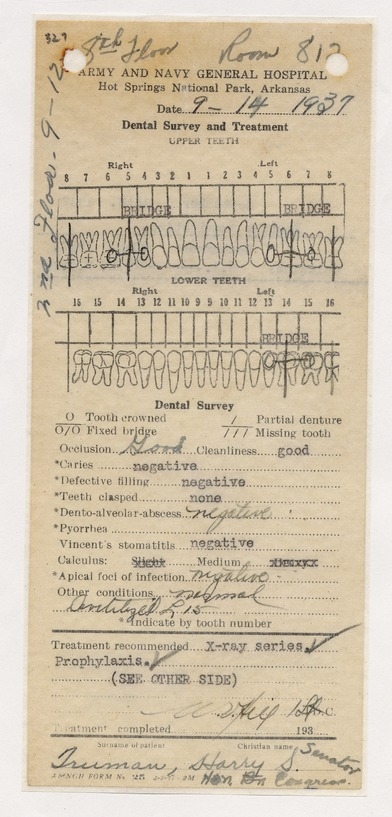 327
8th Floor Room 812
2nd Floor - 9-12
ARMY AND NAVY GENERAL HOSPITAL
Hot Springs National Park, Arkansas
Date 9-14 1937
Dental Survey and Treatment
UPPER TEETH
Right Left
8 7 6 5 4 3 2 1 1 2 3 4 5 6 7 8
BRIDGE BRIDGE
LOWER TEETH
Right Left
16 15 14 13 12 11 10 9 9 10 11 12 13 14 15 16
BRIDGE
Dental Survey
O Tooth crowned / Partial denture
O/O Fixed bridge /// Missing tooth
Occlusion Good Cleanliness good
*Caries negative
*Defective filling negative
*Teeth clasped none
*Dento-alveolar-abscess negative
*Pyorrhea
Vincent's stomatitis negative
Calculus: Slight Medium
*Apical foci of infection negative
Other conditions normal
Devitilized L 15
*Indicate by tooth number
Treatment recommended X-ray series. ✓
Prophylaxis. ✓
(SEE OTHER SIDE)
D.C.
Treatment completed 193
Surname of patient Christian name
Truman, Harry S. Senator
A&NGH FORM No. 25
Congress.